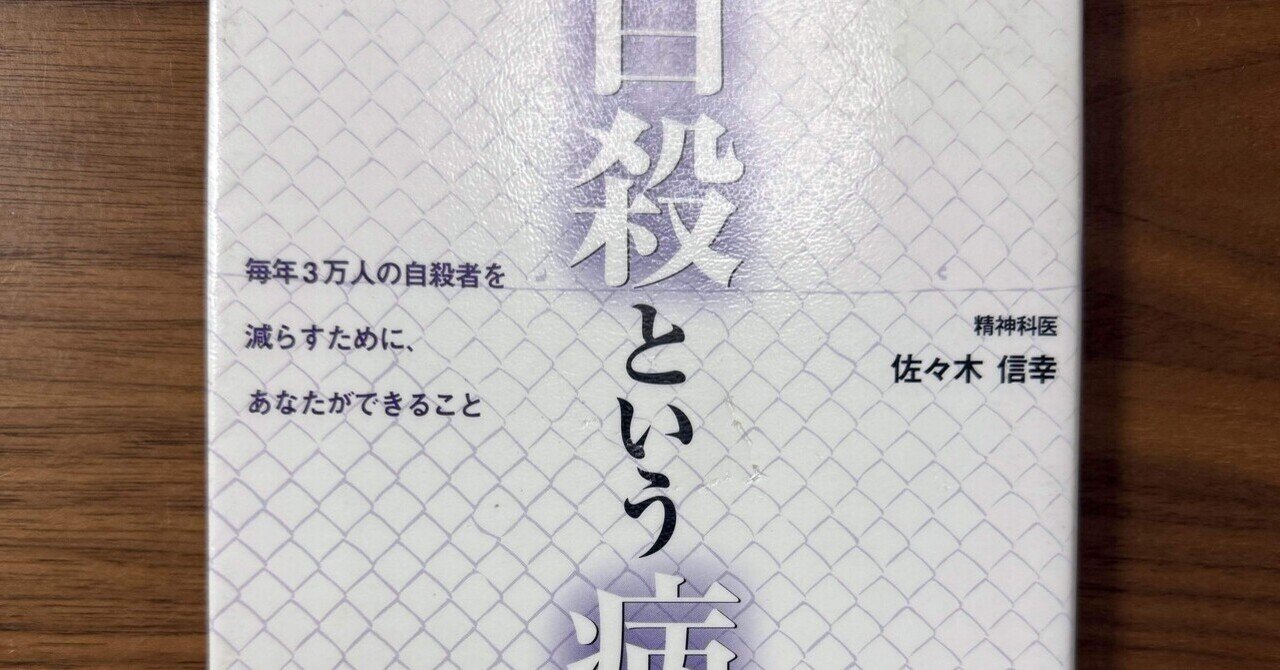 自殺という病
毎年3万人の自殺者を
減らすために、
あなたができること
精神科医
佐々木 信幸